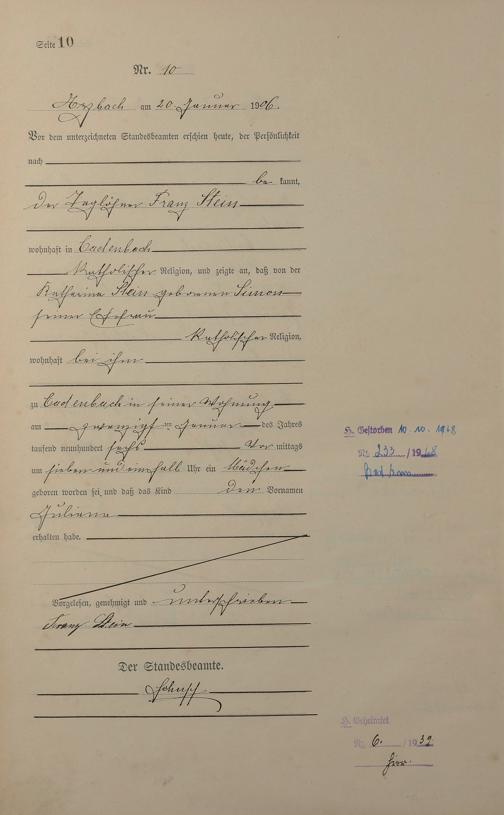 Seite 10
Nr. 10
Arzbach am 20 Januar 1906.
Vor dem unterzeichneten Standesbeamten erschien heute, der Persönlichkeit
nach
be kannt,
der Taglöhner Franz Stein
wohnhaft in Cadenbach
Katholischer Religion, und zeigte an, daß von der
Katharina Stein geborenen Simon
seiner Ehefrau
Katholischer Religion,
wohnhaft bei ihm
zu Cadenbach in seiner Wohnung
am zwanzigsten Januar des Jahres
tausend neunhundert sechs Vor mittags
um sieben und einhalb Uhr ein Mädchen
geboren worden sei, und daß das Kind den Vornamen
Juliana
erhalten habe.
Vorgelesen, genehmigt und unterschrieben
Franz Stein
Der Standesbeamte.
H. Gestorben 10.10.1968
Nr. 233 / 1968
Bad Ems
H. Geheiratet
Nr. 6. / 1932
hier.